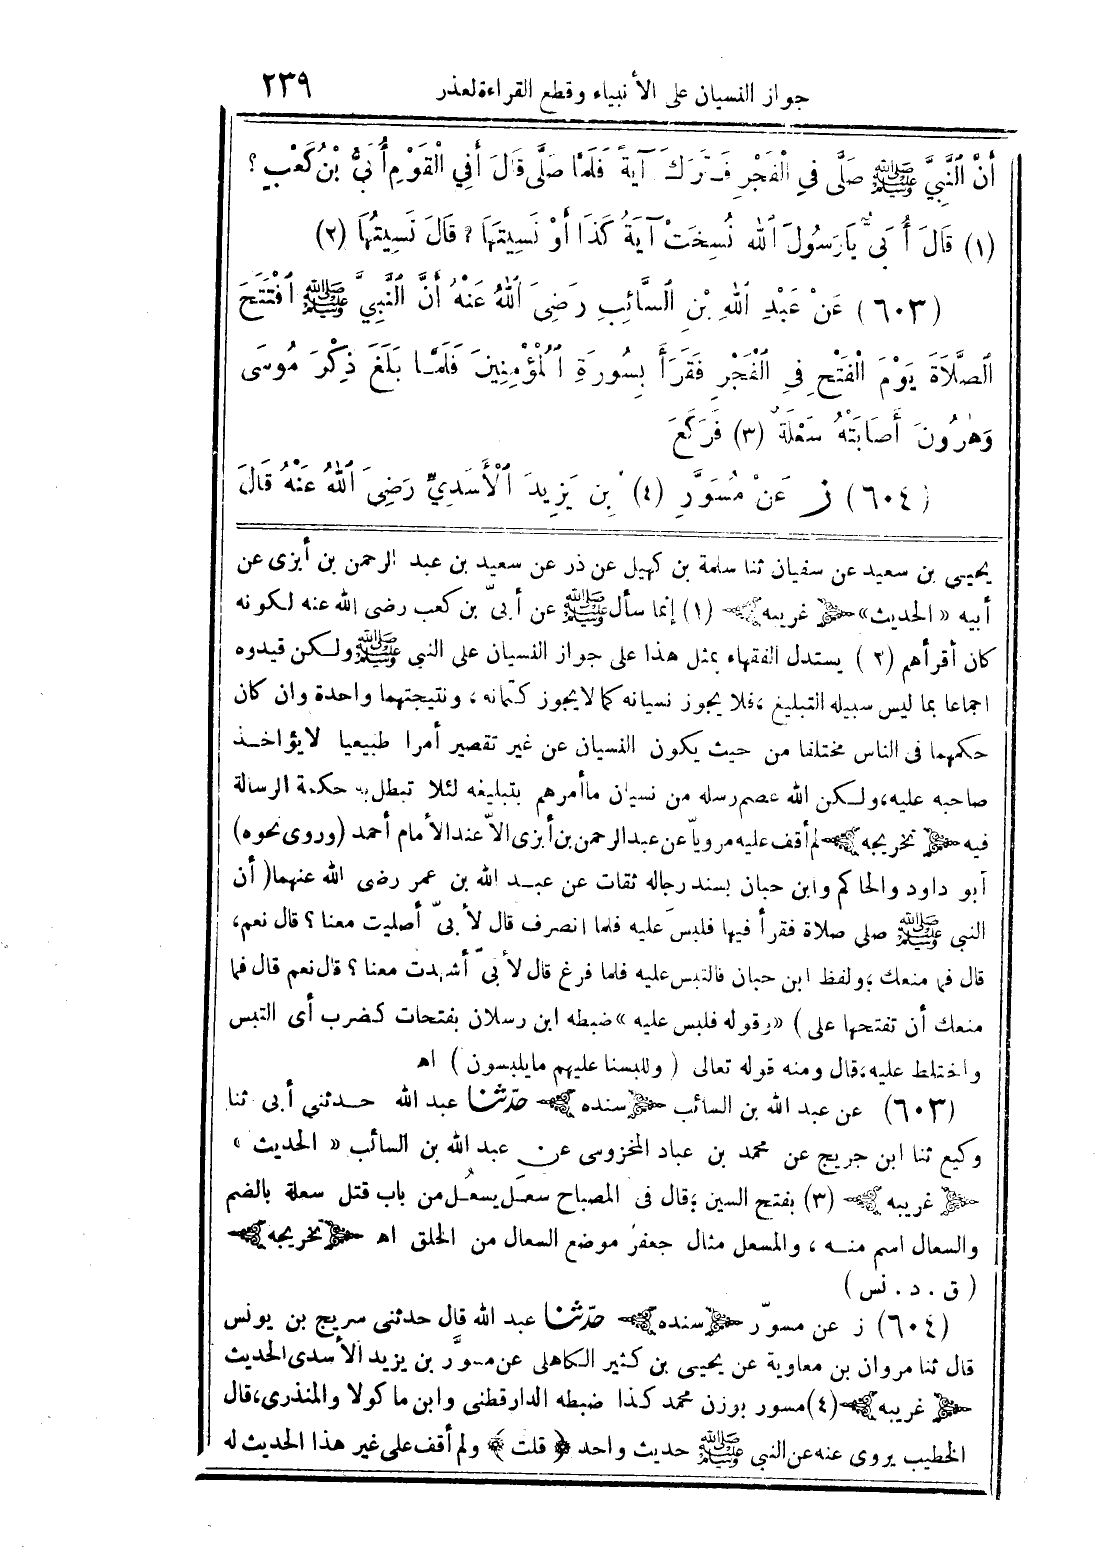 جواز النسيان على الأنبياء وقطع القراءة لعذر ٢٣٩
أَنَّ ٱلنَّبِيَّ ﷺ صَلَّى فِي ٱلْفَجْرِ فَتَرَكَ آيَةً فَلَمَّا صَلَّى قَالَ أَفِي ٱلْقَوْمِ أُبَيُّ بْنُ كَعْبٍ؟
(١) قَالَ أُبَيٌّ يَارَسُولَ ٱللهِ نُسِخَتْ آيَةُ كَذَا أَوْ نَسِيتَهَا؟ قَالَ نَسِيتُهَا (٢)
(٦٠٣) عَنْ عَبْدِ ٱللهِ بْنِ ٱلسَّائِبِ رَضِيَ ٱللهُ عَنْهُ أَنَّ ٱلنَّبِيَّ ﷺ ٱفْتَتَحَ
ٱلصَّلَاةَ يَوْمَ ٱلْفَتْحِ فِي ٱلْفَجْرِ فَقَرَأَ بِسُورَةِ ٱلْمُؤْمِنِينَ فَلَمَّا بَلَغَ ذِكْرَ مُوسَى
وَهٰرُونَ أَصَابَتْهُ سَعْلَةٌ (٣) فَرَكَعَ
(٦٠٤) ز عَنْ مُسَوَّرِ (٤) بْنِ يَزِيدَ ٱلْأَسَدِيِّ رَضِيَ ٱللهُ عَنْهُ قَالَ
يحيى بن سعيد عن سفيان ثنا سلمة بن كهيل عن ذر عن سعيد بن عبد الرحمن بن أبزى عن
أبيه «الحديث» ﴿غريبه﴾ (١) إنما سأل ﷺ عن أبىّ بن كعب رضى الله عنه لكونه
كان أقرأهم (٢) يستدل الفقهاء بمثل هذا على جواز النسيان على النبي ﷺ ولكن قيدوه
اجماعا بما ليس سبيله التبليغ، فلا يجوز نسيانه كما لا يجوز كتمانه، ونتيجتهما واحدة وان كان
حكمهما فى الناس مختلفا من حيث يكون النسيان عن غير تقصير أمرا طبيعيا لا يؤاخذ
صاحبه عليه، ولكن الله عصم رسله من نسيان ما أمرهم بتبليغه لئلا تبطل به حكمة الرسالة
فيه ﴿تخريجه﴾ لم أقف عليه مرويا عن عبدالرحمن بن أبزى الاّ عند الأمام أحمد (وروى نحوه)
أبو داود والحاكم وابن حبان بسند رجاله ثقات عن عبد الله بن عمر رضى الله عنهما( أن
النبى ﷺ صلى صلاة فقرأ فيها فلبس عليه فلما انصرف قال لأبىّ أصليت معنا؟ قال نعم،
قال فما منعك ؛ولفظ ابن حبان فالتبس عليه فلما فرغ قال لأبىّ أشهدت معنا؟ قال نعم قال فما
منعك أن تفتحها على) «وقوله فلبس عليه» ضبطه ابن رسلان بفتحات كضرب أى التبس
واختلط عليه، قال ومنه قوله تعالى (وللبسنا عليهم مايلبسون) اه
(٦٠٣) عن عبد الله بن السائب ﴿سنده﴾ حدّثنا عبد الله حدثنى أبى ثنا
وكيع ثنا ابن جريج عن محمد بن عباد المخزوسى عن عبد الله بن السائب «الحديث»
﴿غريبه﴾ (٣) بفتح السين ؛قال فى المصباح سعَل يسعُل من باب قتل سعلة بالضم
والسعال اسم منه، والمسعل مثال جعفر موضع السعال من الحلق اه ﴿تخريجه﴾
(ق . د . نس)
(٦٠٤) ز عن مسوّر ﴿سنده﴾ حدّثنا عبد الله قال حدثنى سريج بن يونس
قال ثنا مروان بن معاوية عن يحيى بن كثير الكاهلى عن مسوَّر بن يزيد الأسدى الحديث
﴿غريبه﴾ (٤) مسور بوزن محمد كذا ضبطه الدارقطنى وابن ماكولا والمنذرى، قال
الخطيب يروى عنه عن النبى ﷺ حديث واحد ﴿قلت﴾ ولم أقف على غير هذا الحديث له